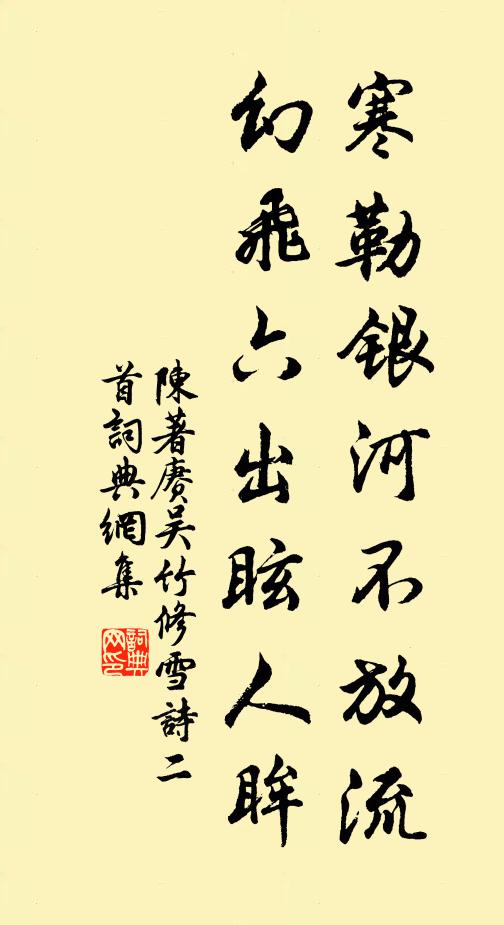 寒勒銀河不放流
幻飛六出眩人眸
陳著賡吳竹修雪詩二
首詞典網集
詞典
网印